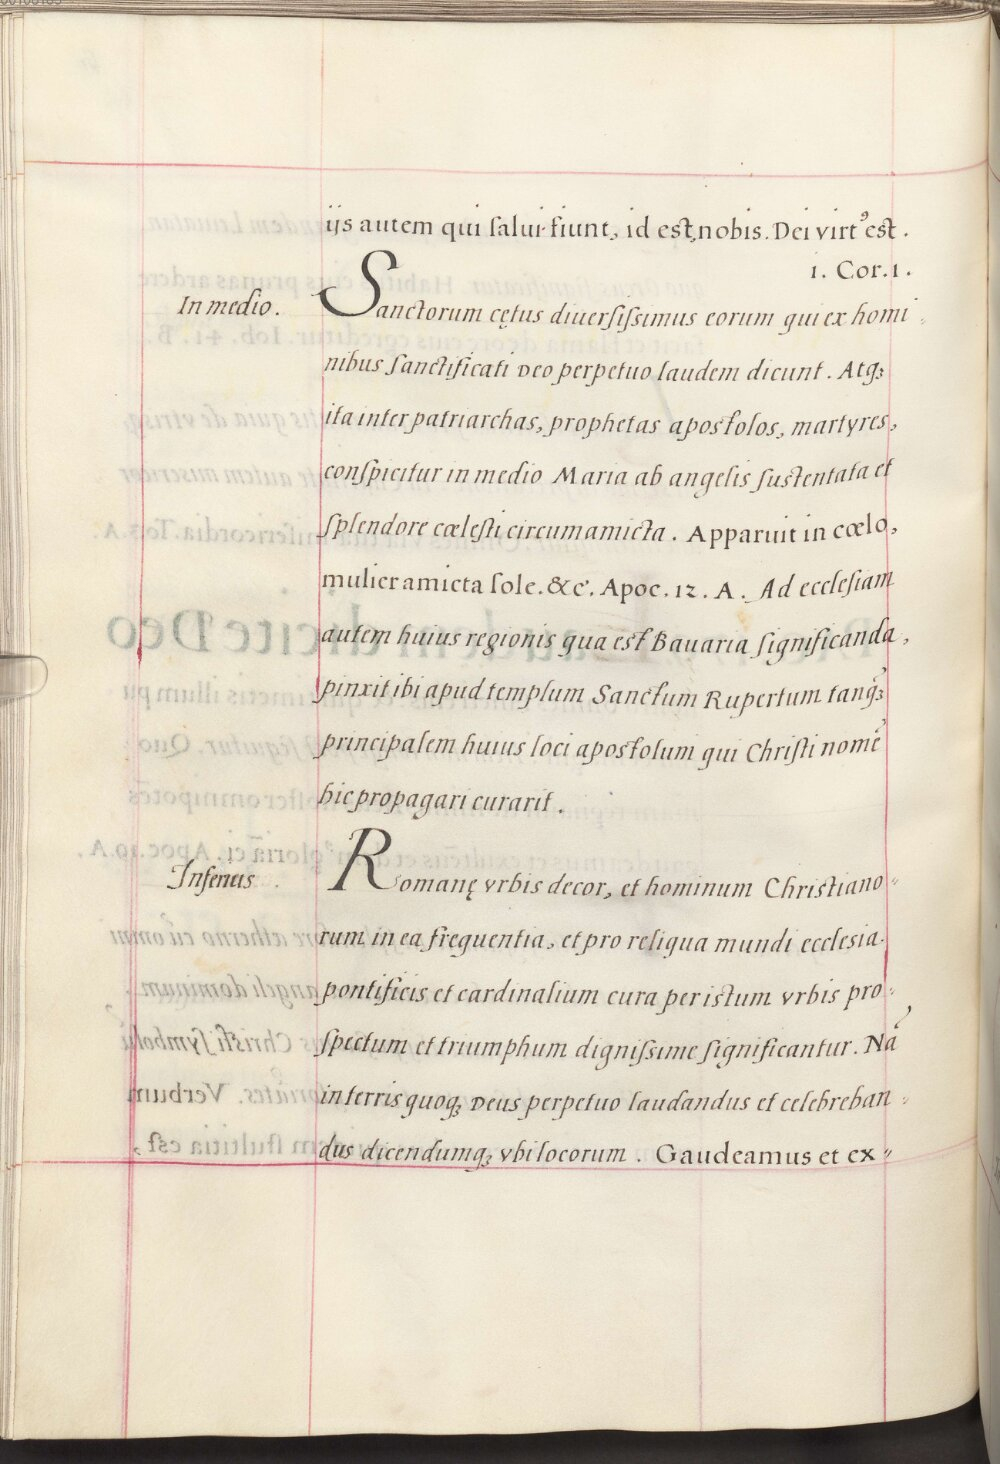 ijs autem qui salui fiunt, id est, nobis. Dei virtꝰ est.
1. Cor. 1.
In medio.
Sanctorum cętus diuersissimus eorum qui ex homi
nibus sanctificati Deo perpetuo laudem dicunt. Atqꝫ
ita inter patriarchas, prophetas apostolos, martyres,
conspicitur in medio Maria ab angelis sustentata et
splendore cœlesti circumamicta. Apparuit in cœlo,
mulier amicta sole. &c. Apoc. 12. A. Ad ecclesiam
autem huius regionis qua est Bavaria significanda,
pinxit ibi apud templum Sanctum Rupertum tanqꝫ
principalem huius loci apostolum qui Christi nomē
hic propagari curarit.
Inferius.
Romanę vrbis decor, et hominum Christiano〃
rum in ea frequentia, et pro reliqua mundi ecclesia
pontificis et cardinalium cura per istum vrbis pro〃
spectum et triumphum dignissime significantur. Nā
in terris quoqꝫ Deus perpetuo laudandus et celebreban〃
dus dicendumqꝫ vbi locorum. Gaudeamus et ex〃